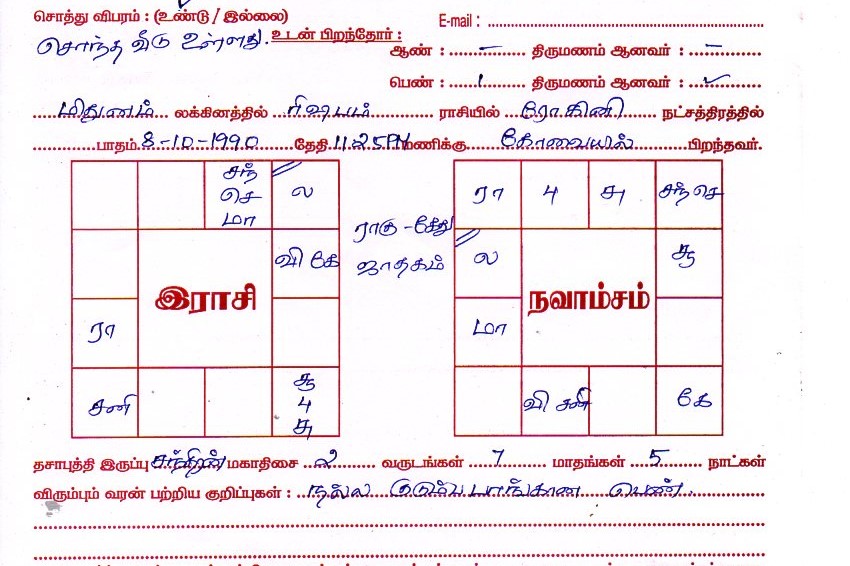 சொத்து விபரம் : (உண்டு / இல்லை)
E-mail :
சொந்த வீடு உள்ளது. உடன் பிறந்தோர் :
ஆண் : – திருமணம் ஆனவர் : –
பெண் : 1 திருமணம் ஆனவர் : ✓
மிதுனம் லக்கினத்தில் ரிஷபம் ராசியில் ரோகிணி நட்சத்திரத்தில்
பாதம் 8-10-1990 தேதி 11.25PM மணிக்கு கோவையில் பிறந்தவர்.
சந் செ மா
ல
வி கே
இராசி
ரா
சனி
சூ 4 சு
ராகு - கேது
ஜாதகம்
ரா 4 சு சந் செ
ல
சூ
நவாம்சம்
மா
வி சனி
கே
தசாபுத்தி இருப்பு சந்திரன் மகாதிசை 2 வருடங்கள் 7 மாதங்கள் 5 நாட்கள்
விரும்பும் வரன் பற்றிய குறிப்புகள் : நல்ல குடும்ப பாங்கான பெண்.